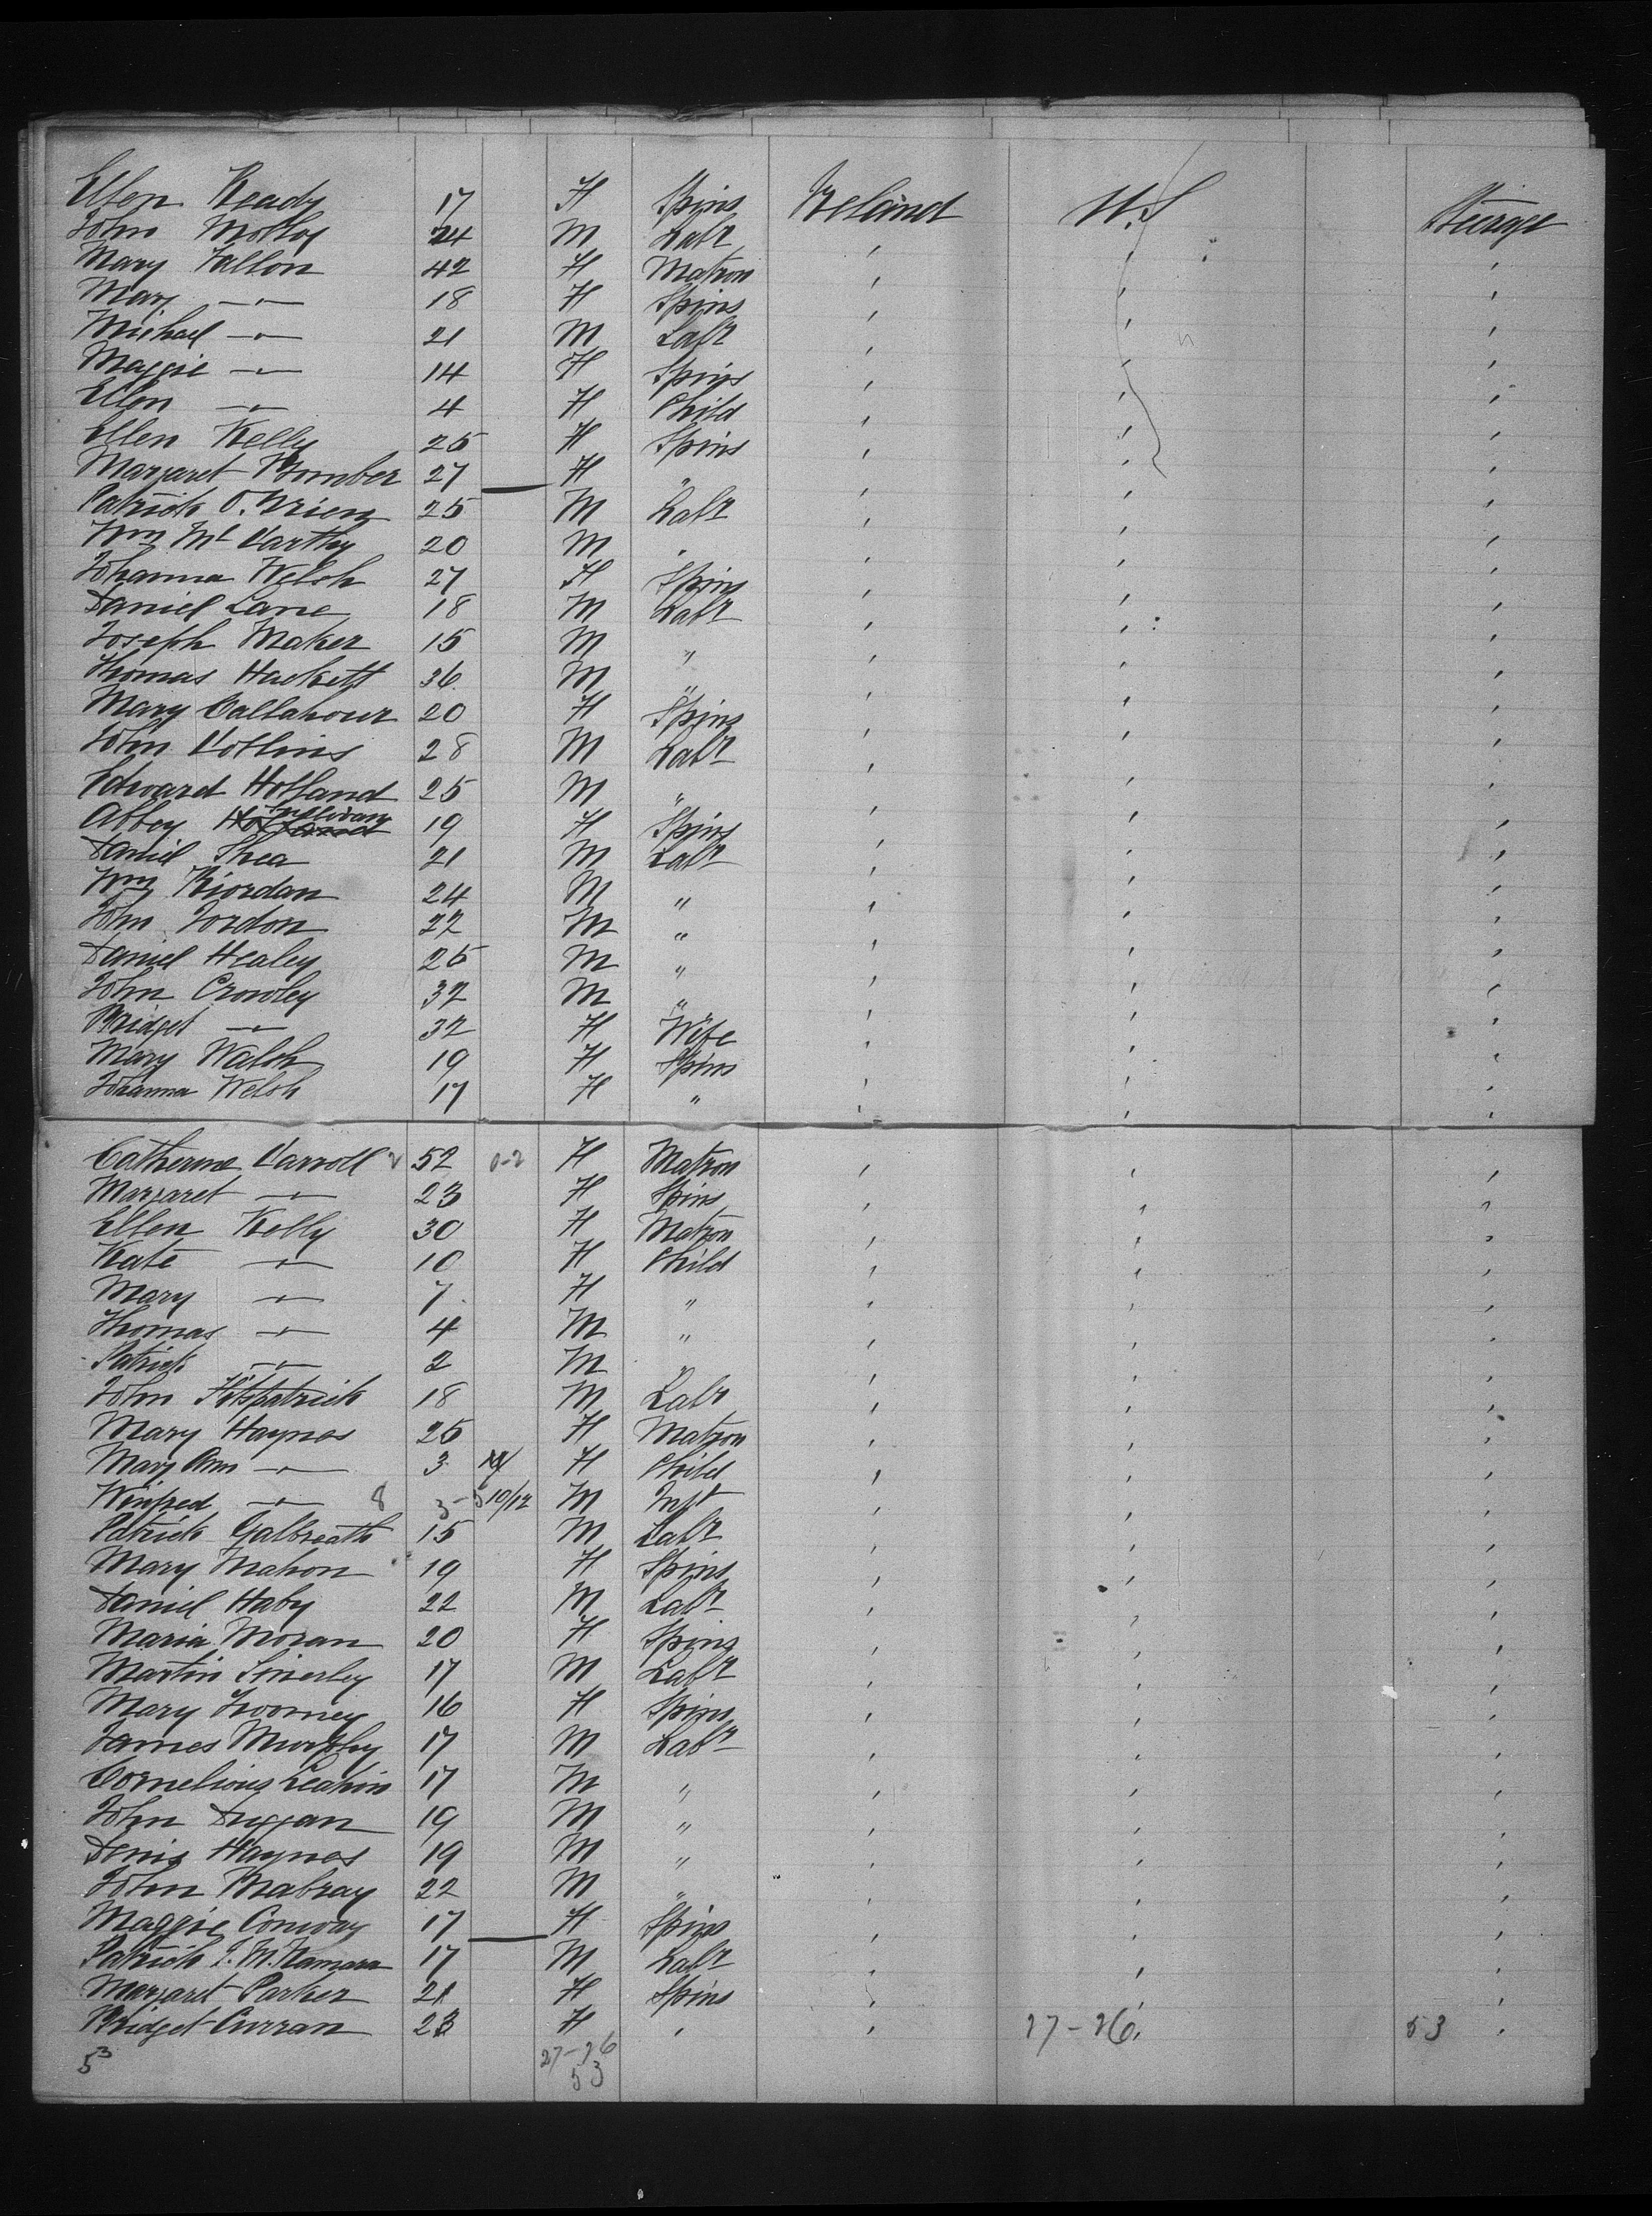 Ellen Ready 17 F Spins Ireland U.S Steerage
John Molloy 24 M Labr , , ,
Mary Fallon 42 F Matron , , ,
Mary —"— 18 F Spins , , ,
Michael —"— 21 M Labr , , ,
Maggie —"— 14 F Spins , , ,
Ellen —"— 4 F Child , , ,
Ellen Kelly 25 F Spins , , ,
Margaret Bomber 27 F " , , ,
Patrick O. Brien 25 M Labr , , ,
Wm Mc Carthy 20 M " , , ,
Johanna Welsh 27 F Spins , , ,
Daniel Lane 18 M Labr , , ,
Joseph Maher 15 M " , , ,
Thomas Hackett 36 M " , , ,
Mary Callahour 20 F Spins , , ,
John Collins 28 M Labr , , ,
Edward Holland 25 M " , , ,
Abbey Sullivan 19 F Spins , , ,
Daniel Shea 21 M Labr , , ,
Wm Riordan 24 M " , , ,
John Jordon 22 M " , , ,
Daniel Healey 25 M " , , ,
John Crowley 32 M " , , ,
Bridget —"— 32 F Wife , , ,
Mary Walsh 19 F Spins , , ,
Johanna Welsh 17 F " , , ,
Catherine Carroll 2 52 0-2 F Matron , , ,
Margaret —"— 23 F Spins , , ,
Ellen Kelly 30 F Matron , , ,
Kate —"— 10 F Child , , ,
Mary —"— 7 F " , , ,
Thomas —"— 4 M " , , ,
Patrick —"— 2 M " , , ,
John Fitzpatrick 18 M Labr , , ,
Mary Haynes 25 F Matron , , ,
Mary Ann —"— 3 F Child , , ,
Winfred —"— 8 3-5 10/12 M Inft , , ,
Patrick Galbreath 15 M Labr , , ,
Mary Mahon 19 F Spins , , ,
Daniel Haby 22 M Labr , , ,
Maria Moran 20 F Spins , , ,
Martin Sinerley 17 M Labr , , ,
Mary Twomey 16 F Spins , , ,
James Murphy 17 M Labr , , ,
Cornelious Leahin 17 M " , , ,
John Duggan 19 M " , , ,
Denis Haynes 19 M " , , ,
John Mabray 22 M " , , ,
Maggie Conway 17 F Spins , , ,
Patrick J. McNamara 17 M Labr , , ,
Margaret Parker 21 F Spins , , ,
Bridget Curran 23 F " , 27-26 , 53 ,
53 27-26
53